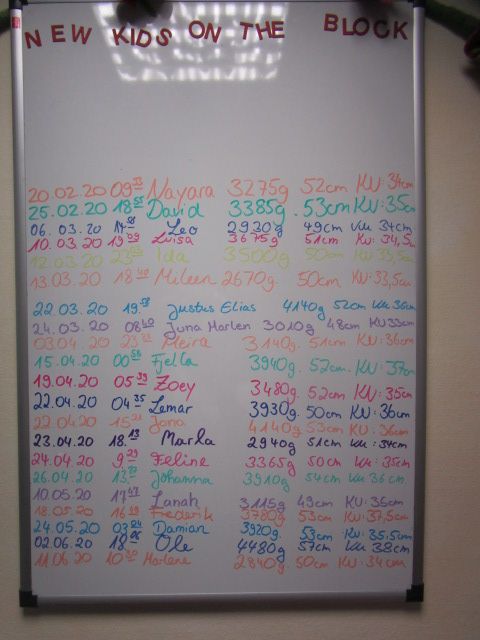 NEW KIDS ON THE BLOCK
20.02.20 09 33 Nayara 3275g 52cm KU: 34cm
25.02.20 18 55 David 3385g. 53cm KU: 35cm
06.03.20 Leo 2930g 49cm KU 34cm
10.03.20 19 09 Luisa 3675g 51cm KU: 34,5cm
12.03.20 Ida 3500g 50cm KU: 33,5cm
13.03.20 18 40 Mileen 2670g. 50cm KU: 33,5cm
22.03.20 19 58 Justus Elias 4140g 52cm KU: 36cm
24.03.20 08 40 Juna Marlen 3010g 48cm KU 33cm
03.04.20 Meira 3140g. 51cm KU: 36cm
15.04.20 00 58 Fjella 3940g. 52cm. KU: 37cm
19.04.20 05 39 Zoey 3480g. 52cm KU: 35cm
22.04.20 04 35 Lemar 3930g. 50cm KU: 36cm
22.04.20 Jana 4140g 53cm KU: 36cm
23.04.20 18 13 Marla 2940g 51cm KU: 34cm
24.04.20 9 29 Feline 3365g 50cm KU: 35cm
26.04.20 Johanna 3910g 54cm KU 36cm.
10.05.20 17 47 Lanah 3115g 49cm KU: 35cm
18.05.20 Frederik 3780g 53cm KU: 37,5cm
24.05.20 03 24 Damian 3920g. 53cm KU: 35,5cm
02.06.20 18 06 Ole 4480g 57cm KU 38cm
11.06.20 Marlene 2840g. 50cm KU: 34cm